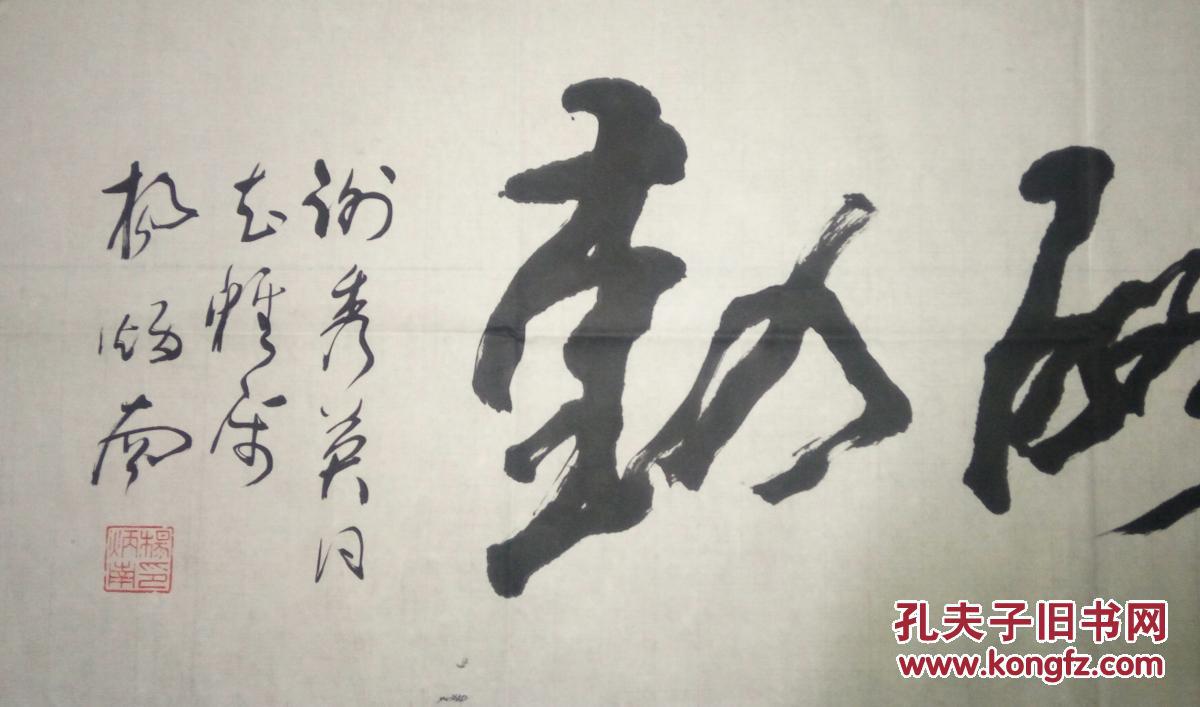 勤
谢秀英同
志雅属
杨炳南
楊印
炳南
孔夫子旧书网
www.kongfz.com